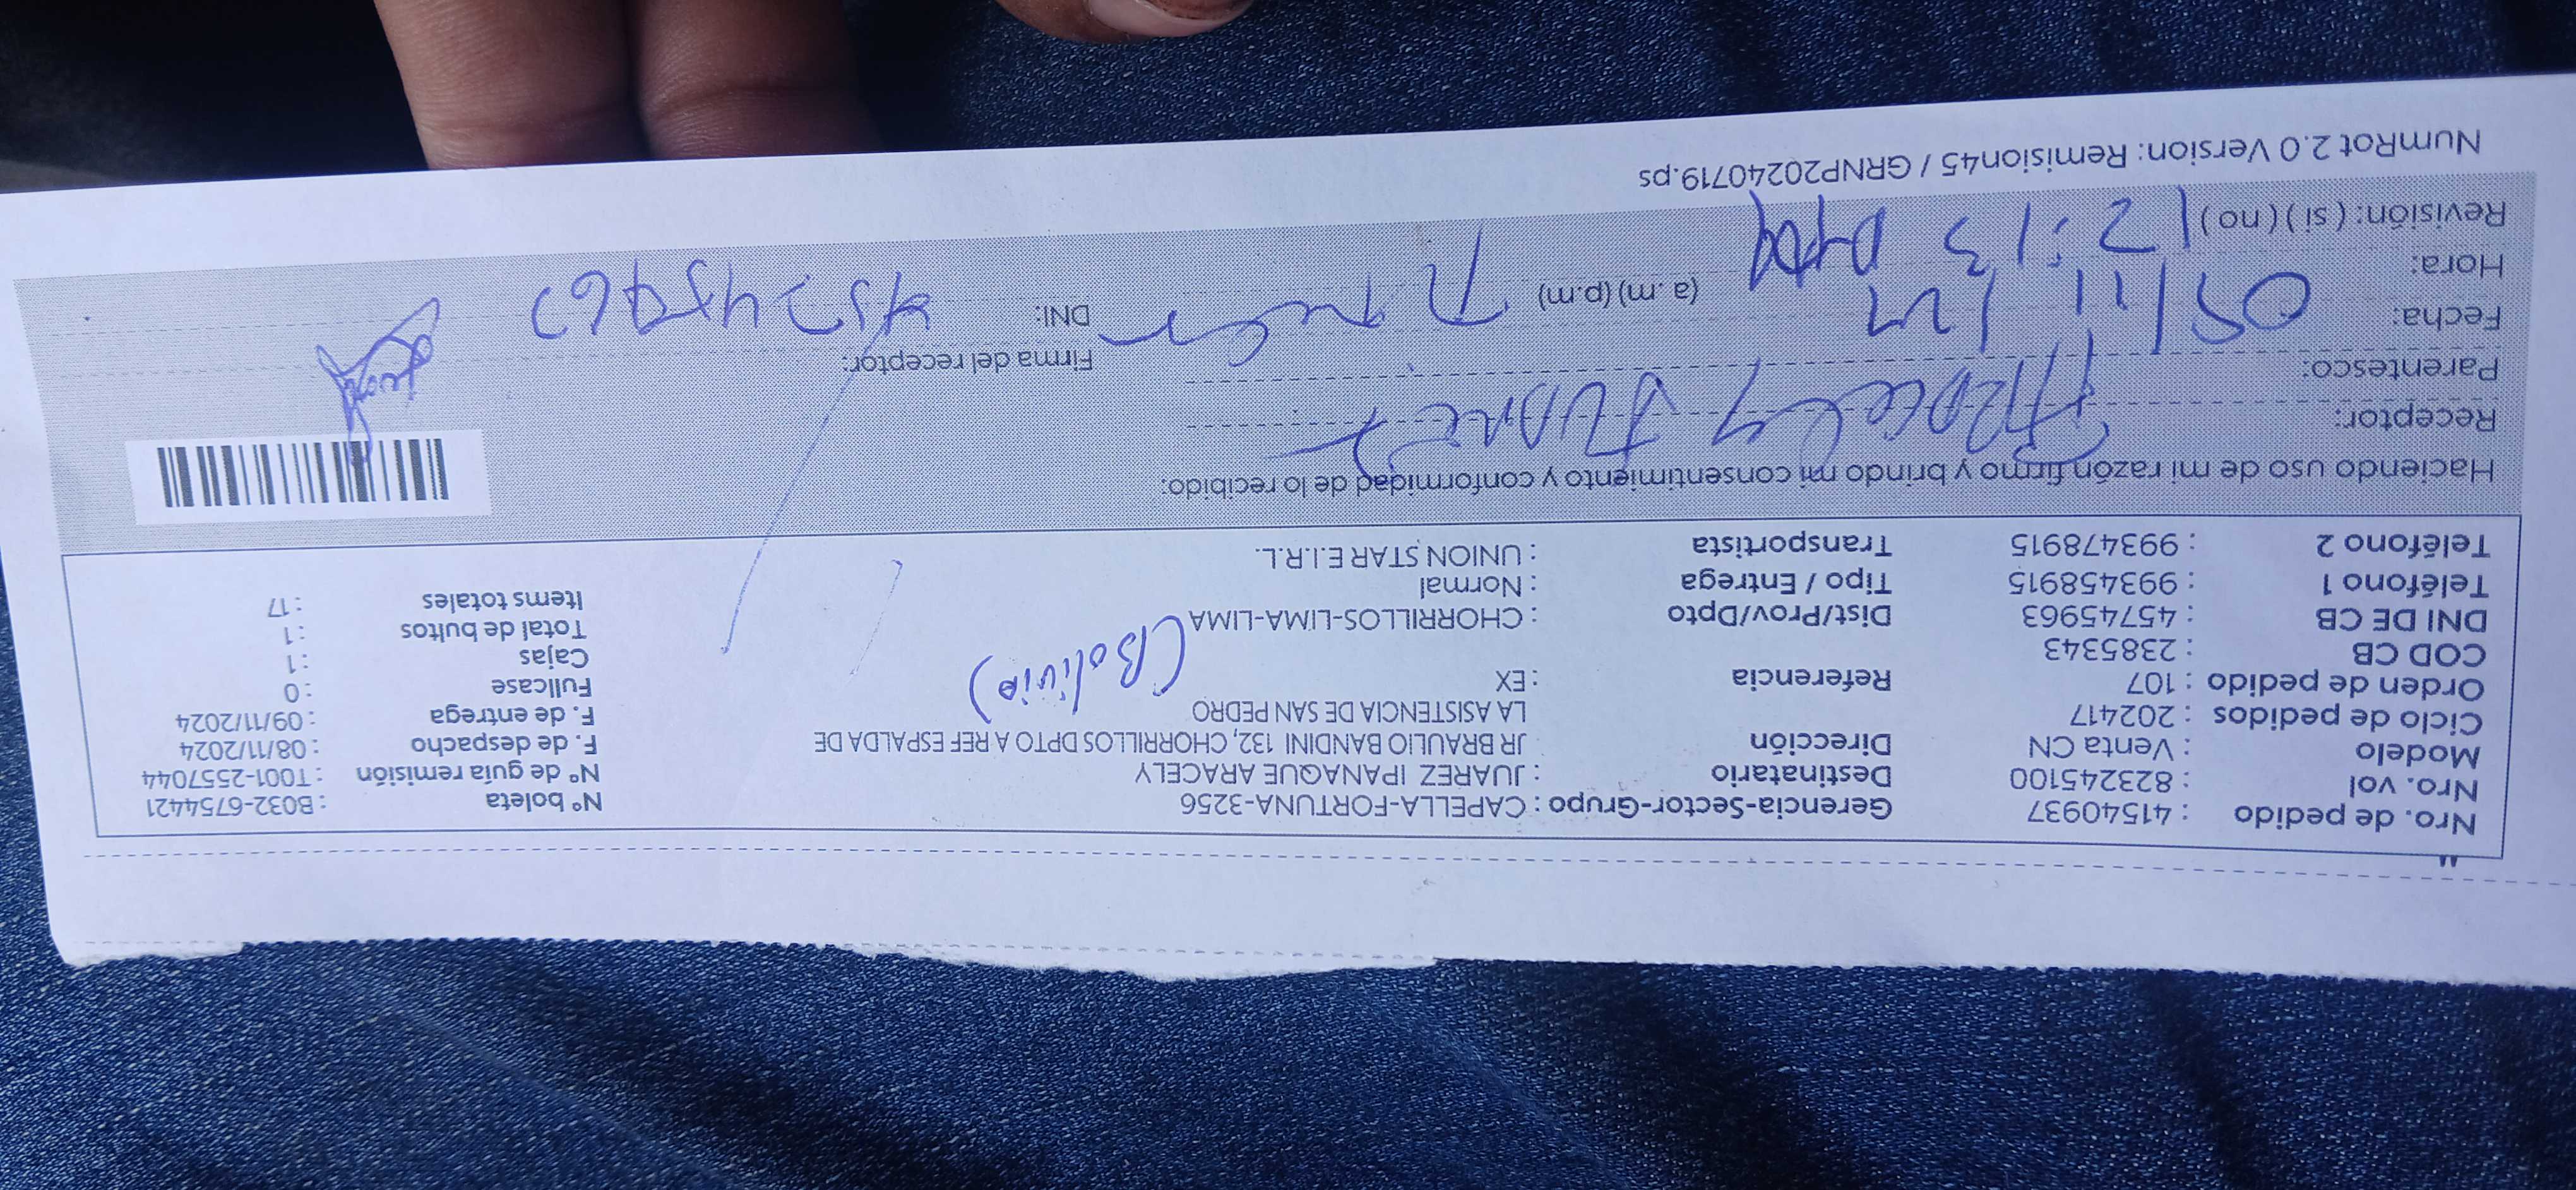 Nro. de pedido : 41540937 Gerencia-Sector-Grupo : CAPELLA-FORTUNA-3256 N° boleta : B032-6754421
Nro. vol : 823245100 Destinatario : JUAREZ IPANAQUE ARACELY N° de guía remisión : T001-2557044
Modelo : Venta CN Dirección JR BRAULIO BANDINI 132, CHORRILLOS DPTO A REF ESPALDA DE F. de despacho : 08/11/2024
Ciclo de pedidos : 202417 LA ASISTENCIA DE SAN PEDRO F. de entrega : 09/11/2024
Orden de pedido : 107 Referencia : EX (Bolivia) Fullcase : 0
COD CB : 2385343 Cajas : 1
DNI DE CB : 45745963 Dist/Prov/Dpto : CHORRILLOS-LIMA-LIMA Total de bultos : 1
Teléfono 1 : 993458915 Tipo / Entrega : Normal Items totales : 17
Teléfono 2 : 993478915 Transportista : UNION STAR E.I.R.L.
Haciendo uso de mi razón firmo y brindo mi consentimiento y conformidad de lo recibido:
Receptor: Aracely Juarez
Parentesco: Firma del receptor:
Fecha: 09/11/24
Hora: 12:13 (a.m) (p.m) DNI: 45745963
Revisión: ( si ) ( no )
NumRot 2.0 Version: Remision45 / GRNP20240719.ps